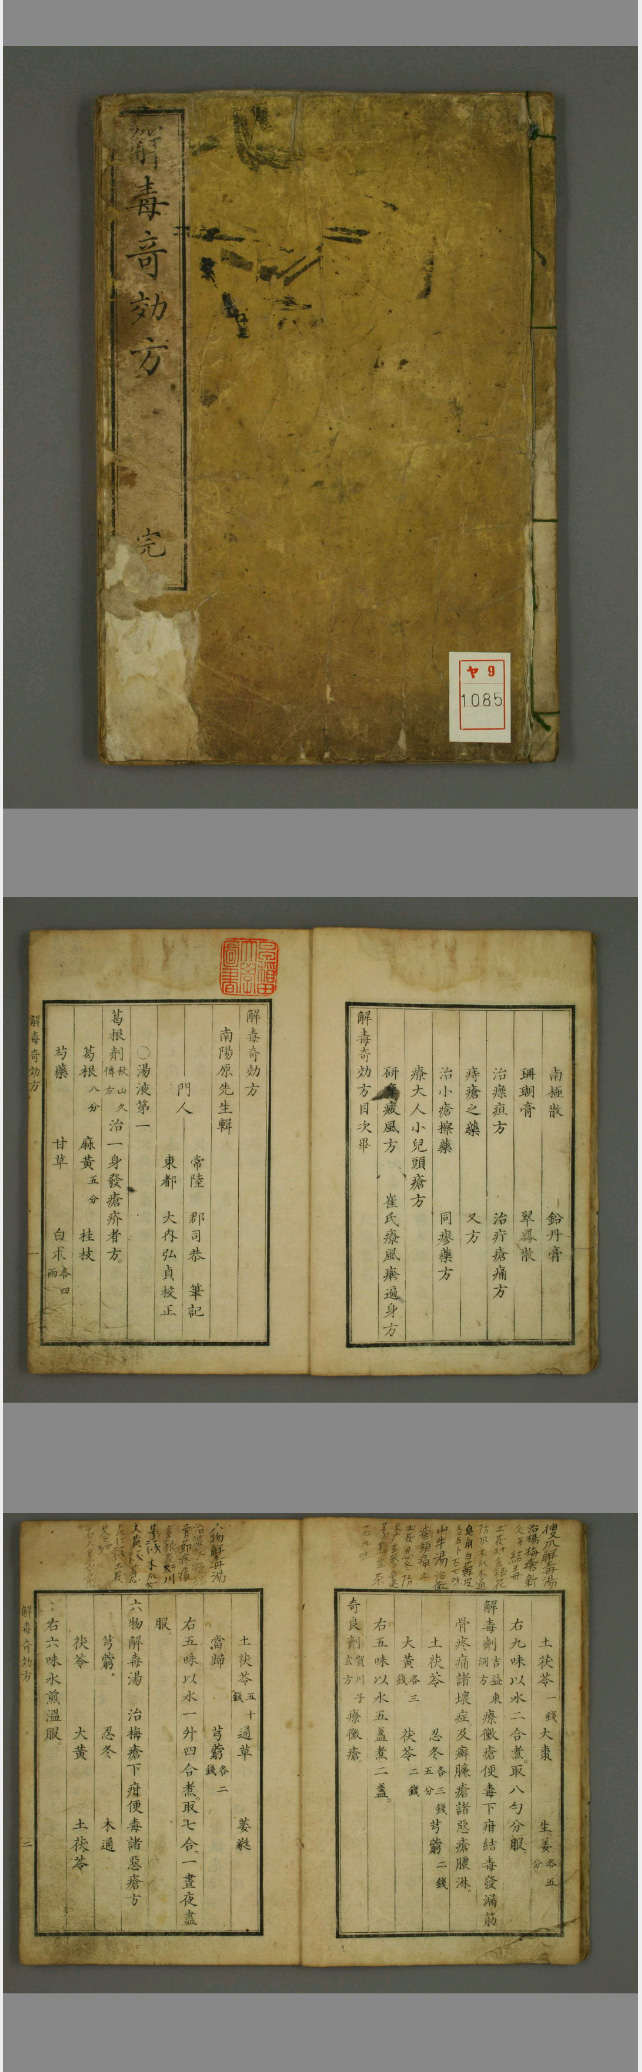 解毒奇効方
完
ヤ9
1085
南極散　鉛丹膏
珊瑚膏　翠鳳散
治瘭疽方　治疔瘡痛方
痔瘡之藥　又方
治小瘡擦藥　同瘮藥方
療大人小兒頭瘡方
風方　崔氏療風癩遍身方
解毒奇効方目次畢
解毒奇効方
南陽原先生輯
常陸　郡司恭　筆記
門人
東都　大内弘貞校正
〇湯液第一
葛根劑秋山久傳方治一身發瘡疥者方。
葛根八分　麻黃五分　桂枝
芍藥　甘草　白朮各四
解毒奇効方
一
土茯苓一錢　大棗　生姜各五分
右九味以水二合煮。取八勺分服。
解毒劑吉益東洞方療黴瘡便毒下疳結毒發漏筋
骨疼痛諸壞症及癬臁瘡諸惡瘡膿淋。
土茯苓　忍冬各三錢五分　芎藭二錢
大黃各三錢　茯苓二錢
右五味以水五盞煮二盞。
奇良劑賀川子玄方療黴瘡。
土茯苓五十錢　通草
當歸　芎藭各二錢
右五味以水一升四合煮。取七合。一晝夜盡
服
六物解毒湯　治梅瘡下疳便毒諸惡瘡方
芎藭　忍冬　木通
茯苓　大黃　土茯苓
右六味水煎溫服。
解毒奇効方
二